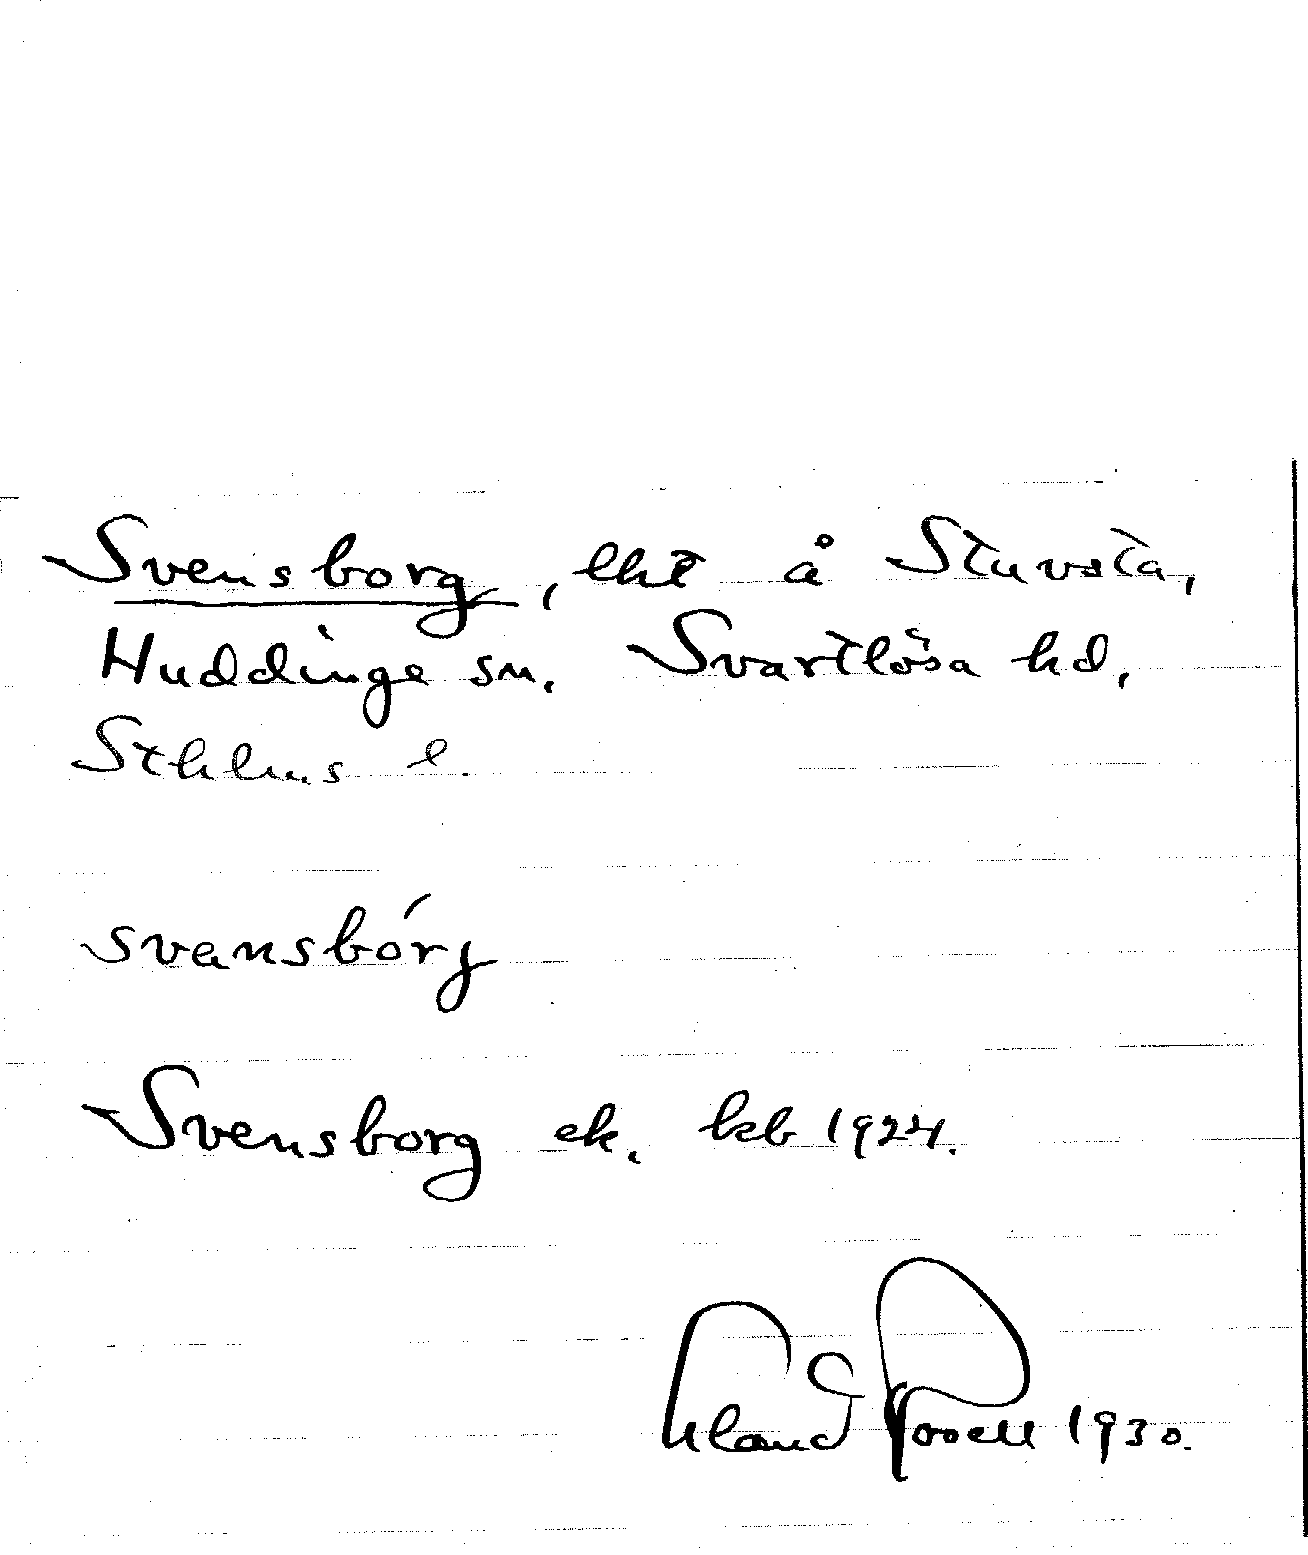 Svensborg, lht å Stuvsta,
Huddinge sn. Svartlösa hd,
Sthlms l.
svansbórj
Svensborg ek. kb 1924.
1930.